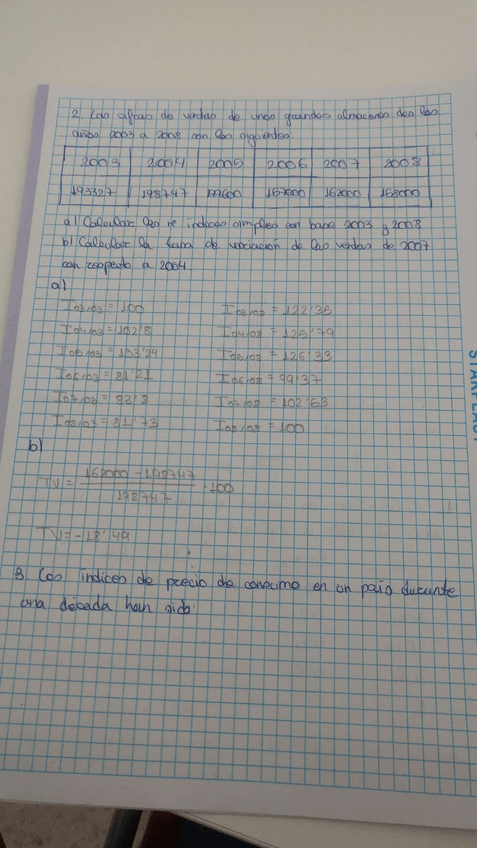 2. Las cifras de ventas de unos grandes almacenes de los
años 2003 a 2008 son las siguientes.
2003 2004 2005 2006 2007 2008
193327 198747 199600 157000 162000 158000
a) Calcular los nº índices simples con base 2003 y 2008
b) Calcular la tasa de variación de las ventas de 2007
con respecto a 2004.
a)
I03/03 = 100 I03/08 = 122'35
I04/03 = 102'8 I04/08 = 125'79
I05/03 = 103'24 I05/08 = 126'33
I06/03 = 81'21 I06/08 = 99'37
I07/03 = 83'8 I07/08 = 102'53
I08/03 = 81'73 I08/08 = 100
b)
TV = 162000 - 198747 / 198747 · 100
TV = -18'49
3. Los índices de precio de consumo en un país durante
una década han sido: